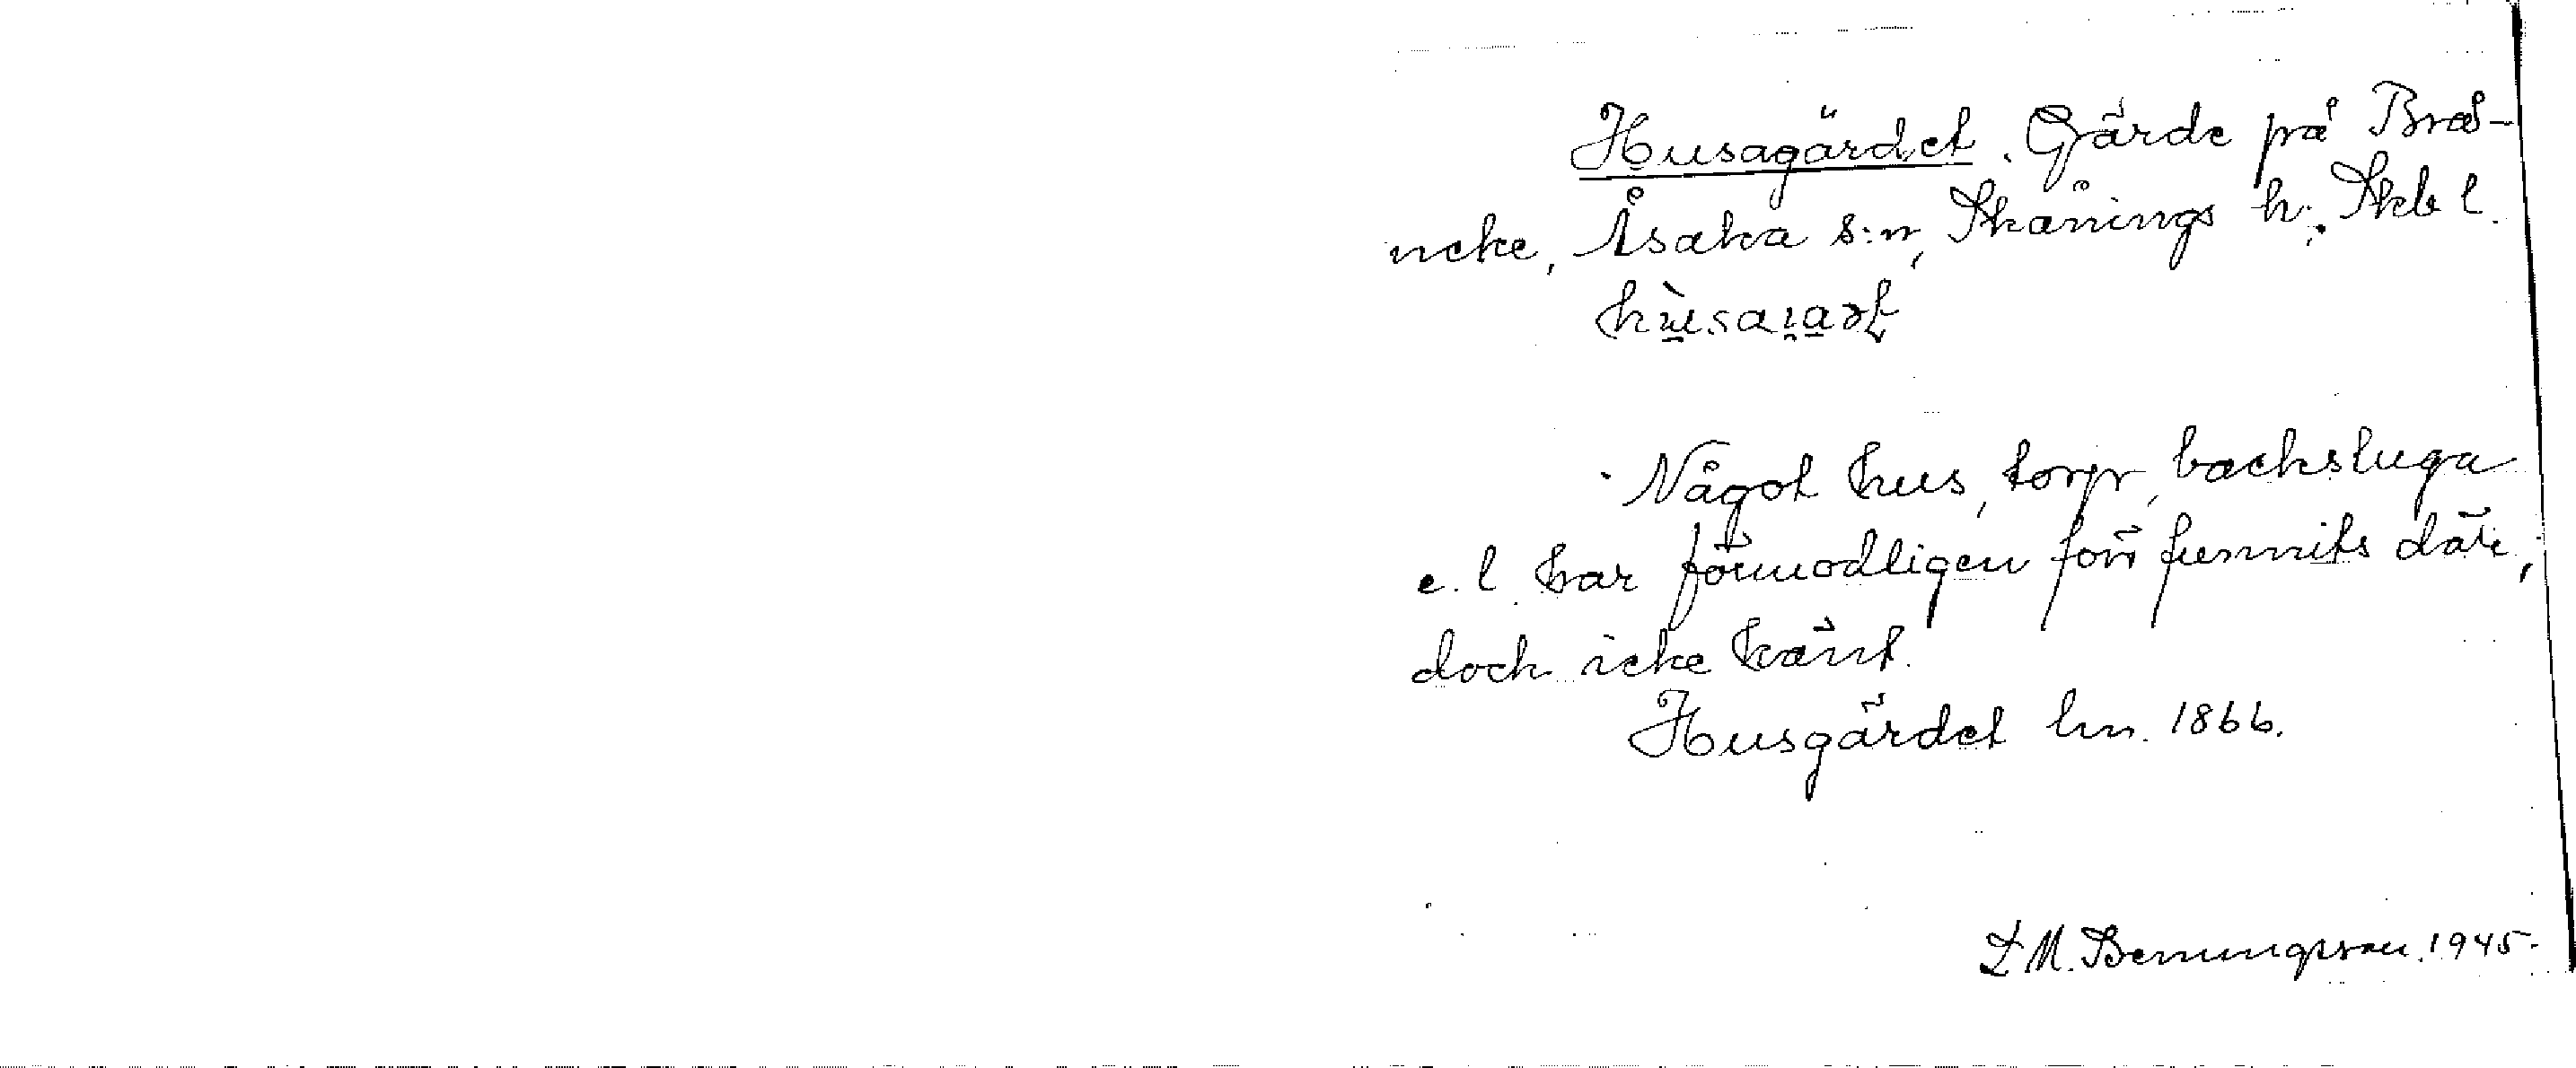 Husagärdet. Gärde på Brå-
neke, Åsaka s:n, Skånings h., Skb l.
Något hus, torp, backstuga
e. l. har förmodligen förr funnits där,
doch icke känt.
Husgärdet lm. 1866.
L M. Benningsson. 1945.